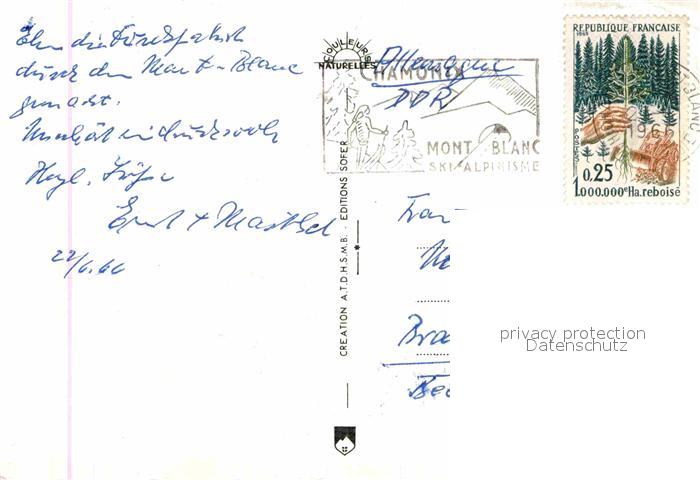 Eben die Durchfahrt
durch den Mont-Blanc
gemacht.
Herzl. Grüße
Ernst +
22/6.66
COULEURS
NATURELLES
CREATION A.T.D.H.S.M.B. - EDITIONS SOFER
CHAMONIX
MONT BLANC
SKI-ALPINISME
Allemagne
DDR
REPUBLIQUE FRANÇAISE
1965
POSTES
0,25
1.000.000e Ha.reboisé
1966
Frau
Bra
privacy protection
Datenschutz